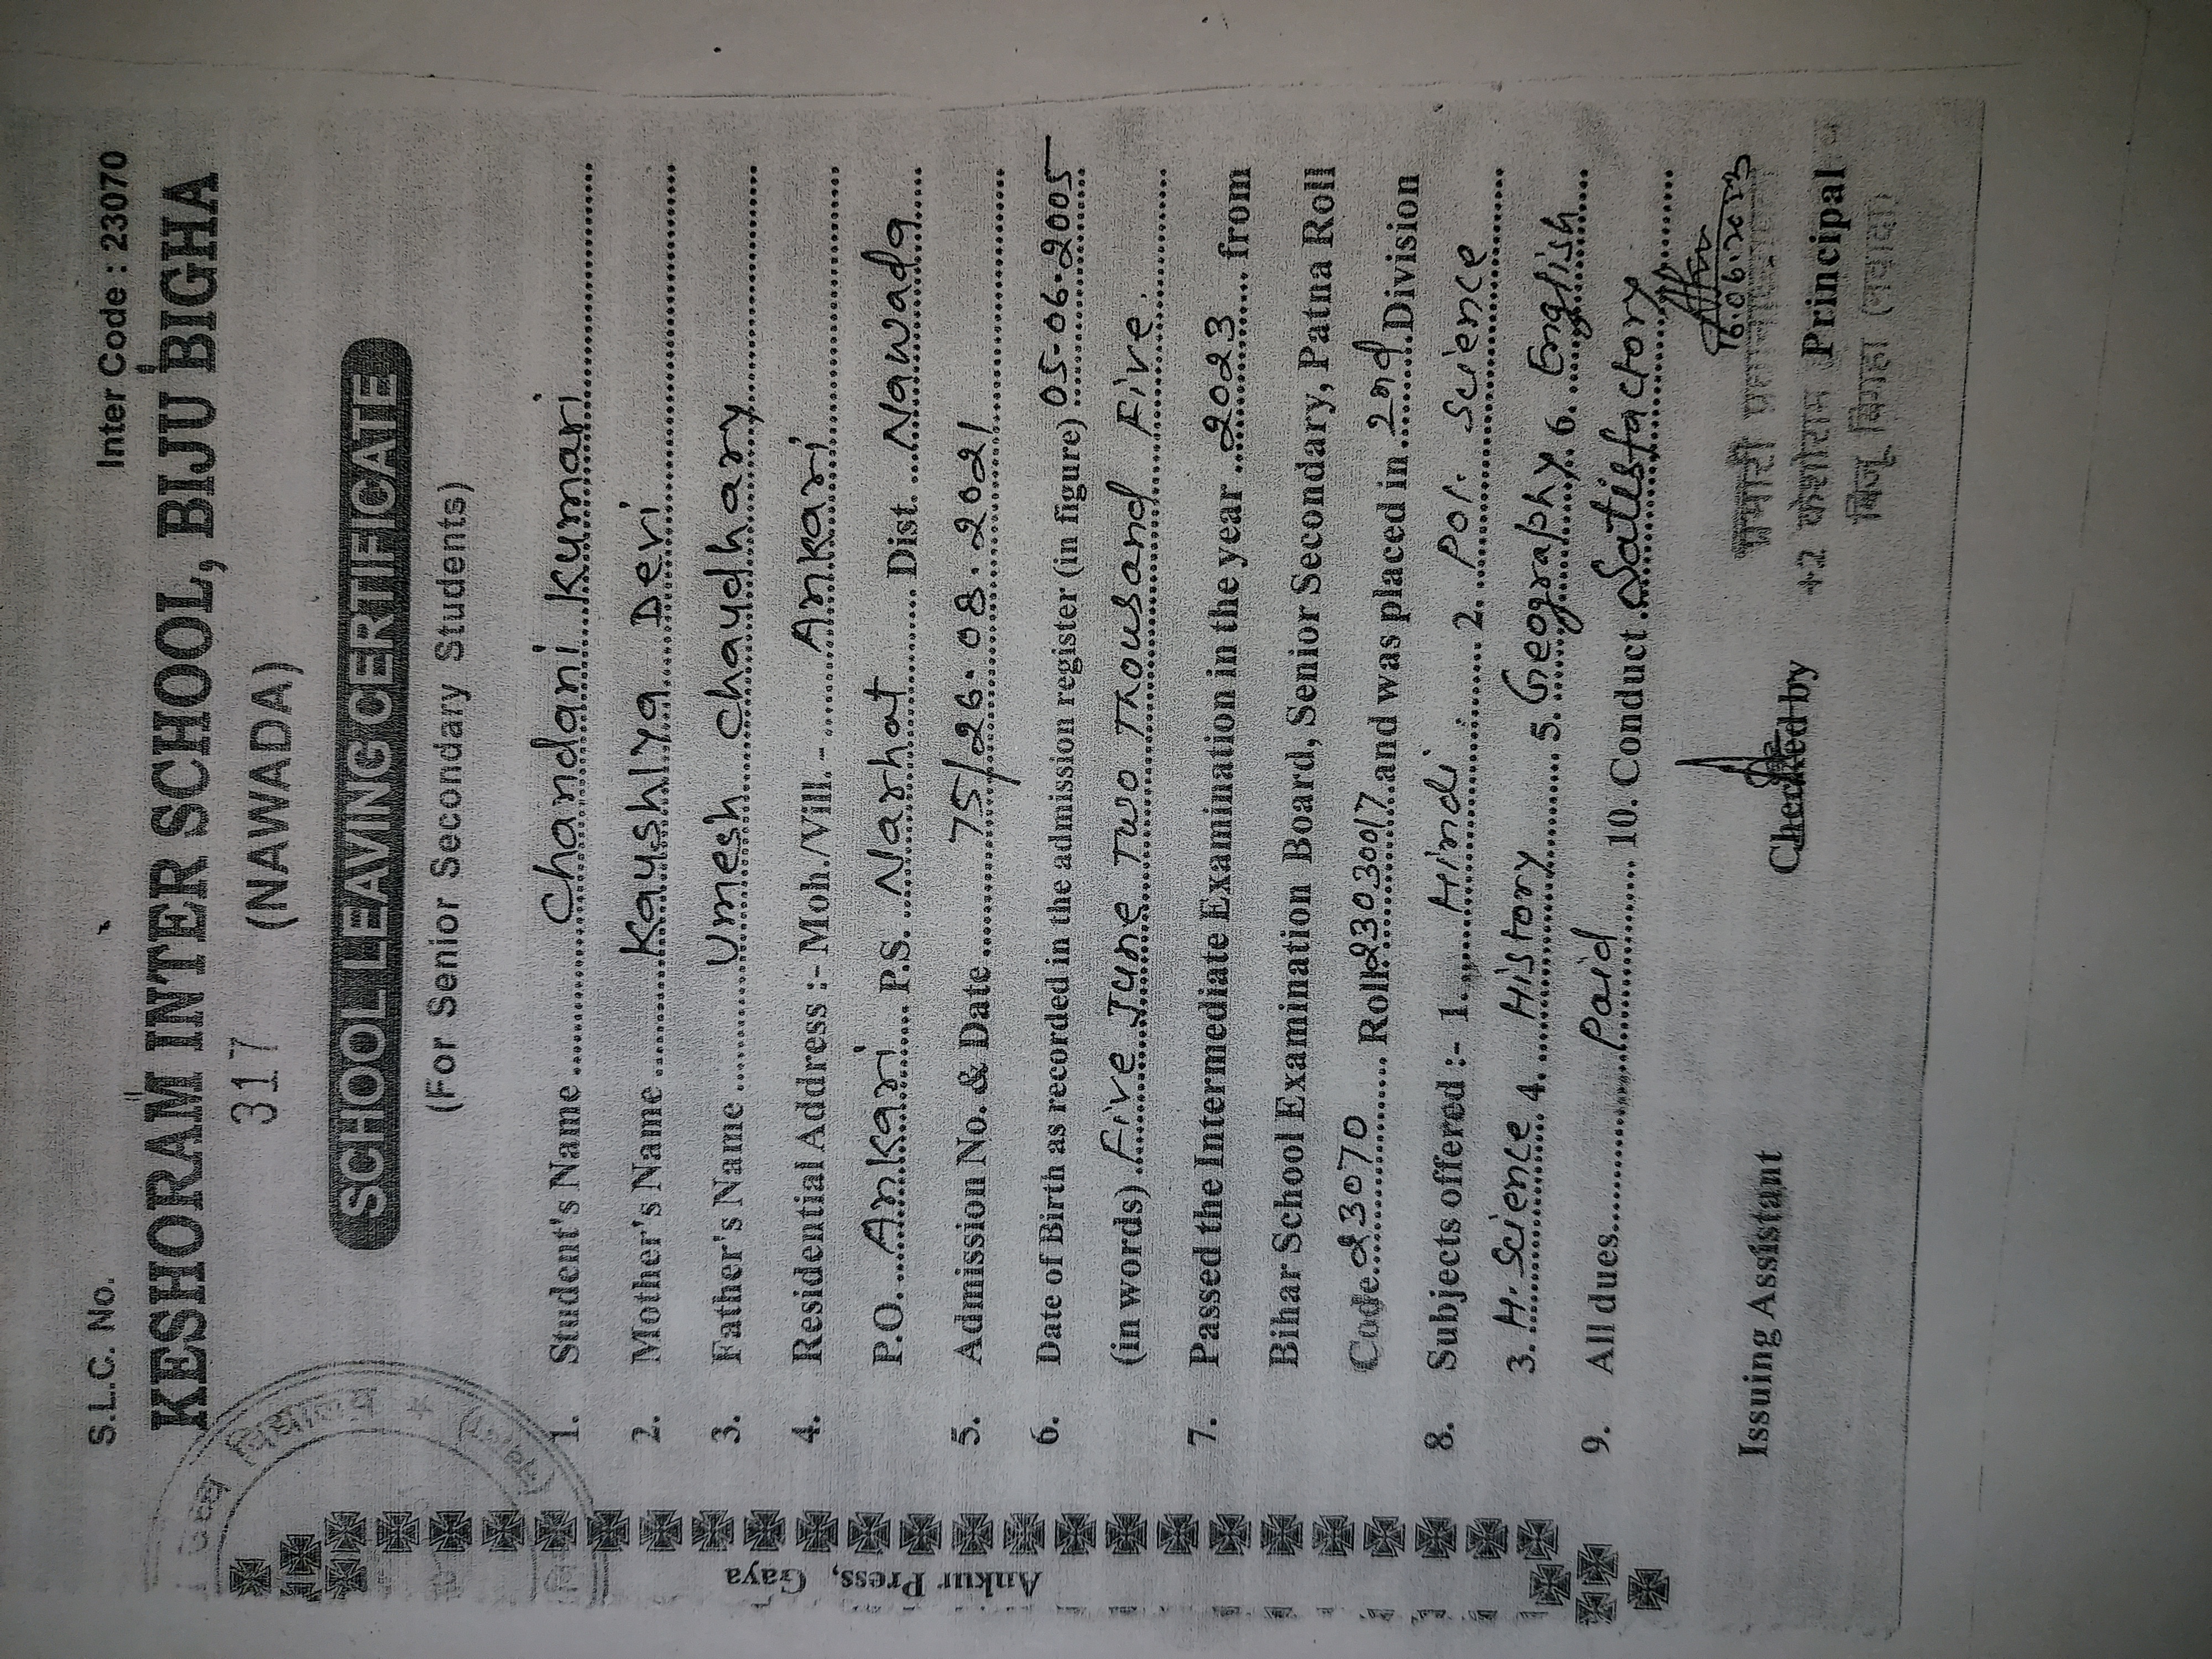 S.L.C. No. Inter Code : 23070
KESHORAM INTER SCHOOL, BIJU BIGHA
317 (NAWADA)
SCHOOL LEAVING CERTIFICATE
(For Senior Secondary Students)
1. Student's Name Chandani Kumari
2. Mother's Name Kaushlya Devi
3. Father's Name Umesh Chaudhary
4. Residential Address :- Moh./Vill. - Ankari
P.O. Ankari P.S. Narhat Dist. Nawada
5. Admission No. & Date 75/26.08.2021
6. Date of Birth as recorded in the admission register (in figure) 05-06-2005
(in words) Five June Two Thousand Five.
7. Passed the Intermediate Examination in the year 2023 from
Bihar School Examination Board, Senior Secondary, Patna Roll
Code 23070 Roll 23030017 and was placed in 2nd Division
8. Subjects offered :- 1. Hindi 2. Pol. Science
3. H. Science 4. History 5. Geography 6. English
9. All dues Paid 10. Conduct Satisfactory
16.06.2023
Issuing Assistant Checked by Principal
प्रभारी
+2 केशोराम
बिजू बिगहा (नवादा)
विद्यालय
Ankur Press, Gaya